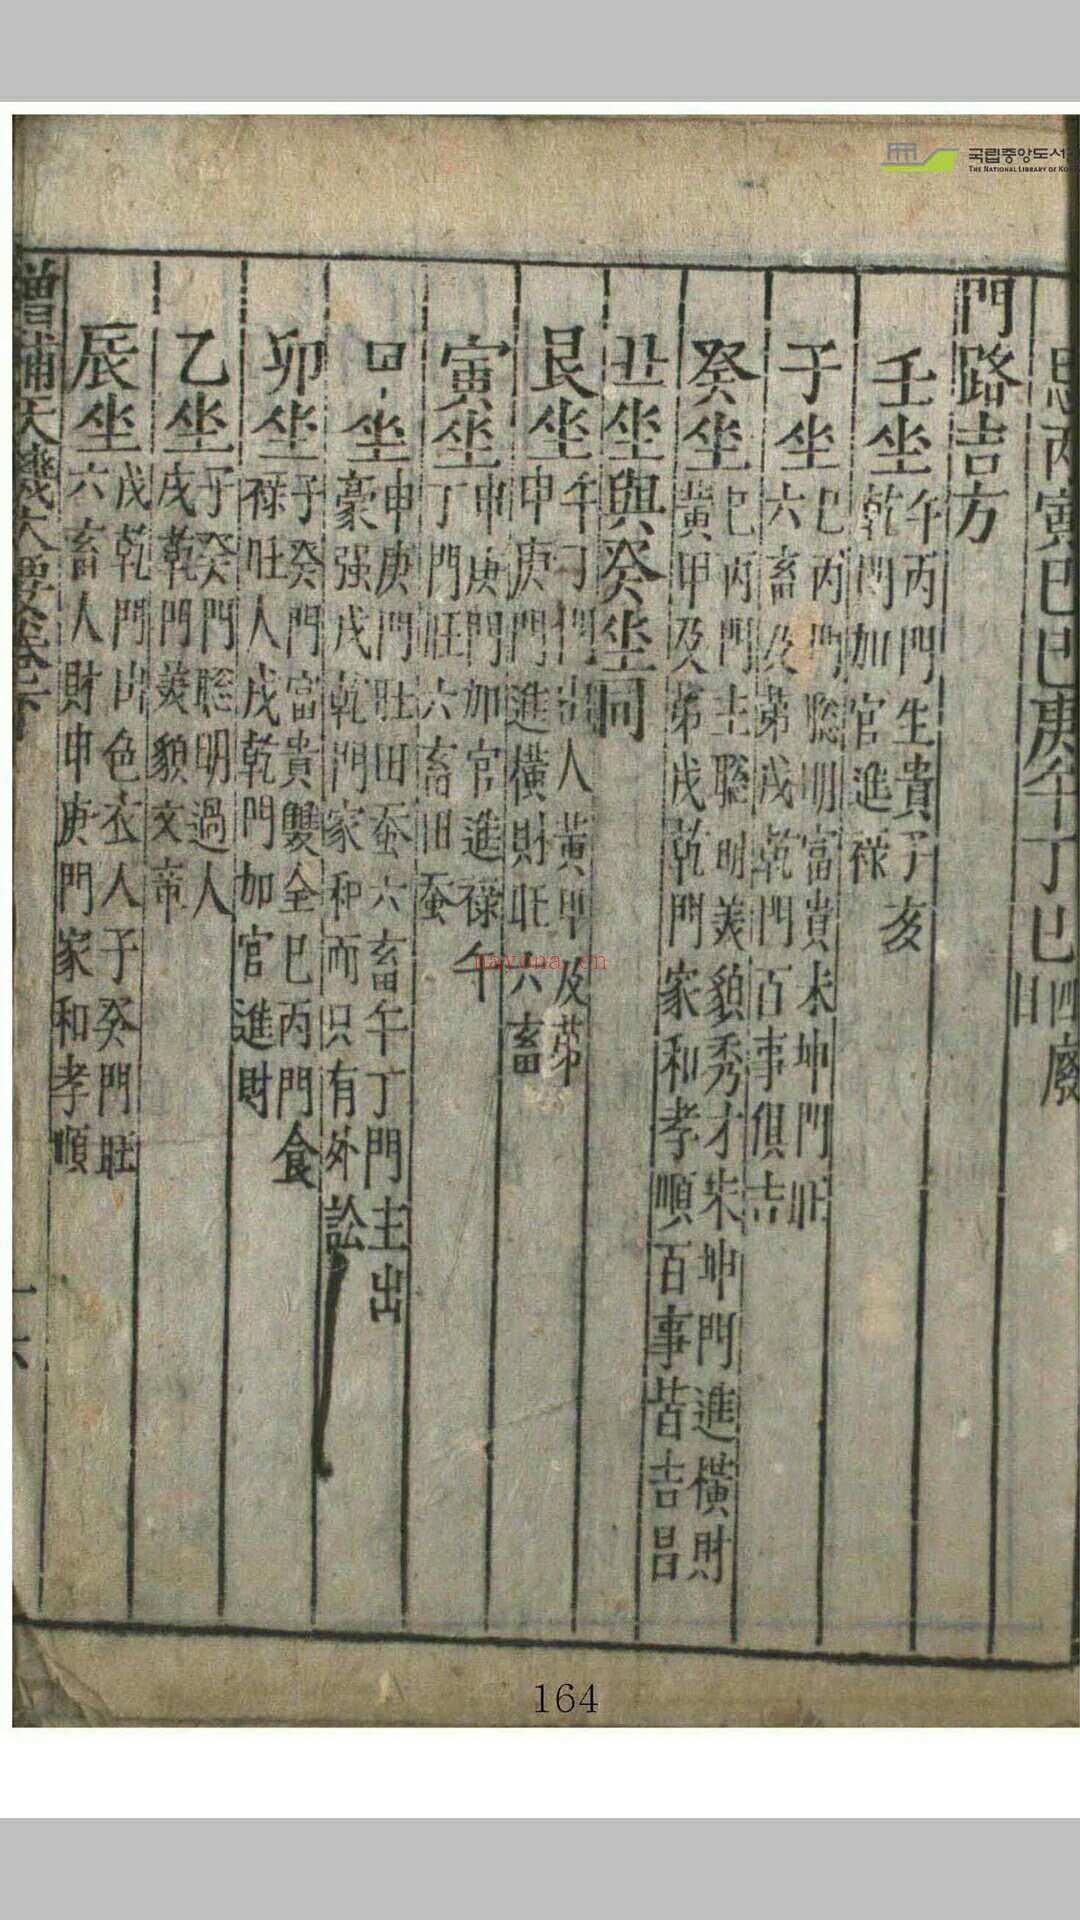 국립중앙도서관
THE NATIONAL LIBRARY OF KO
丙寅己巳庚午丁巳四廢
日
門路吉方
壬坐
午丙門生貴子亥
乾門加官進祿
子坐
巳丙門聡明富貴未坤門旺
六畜及苐戌乾門百事俱吉
癸坐
巳丙門主聡明美貌秀才未坤門進橫財
黃甲及苐戌乾門家和孝順百事皆吉昌
丑坐與癸坐同
艮坐
午丁門出人黃甲及苐
申庚門進橫財旺六畜
寅坐
申庚門加官進祿午
丁門旺六畜田蚕
甲坐
申庚門旺田蚕六畜午丁門主出
豪强戌乾門家和而只有外訟
卯坐
子癸門富貴雙全巳丙門食
祿旺人戌乾門加官進財
乙坐
子癸門聡明過人
戌乾門美貌文章
辰坐
戌乾門出色衣人子癸門旺
六畜人財申庚門家和孝順
增補天機大要卷之下
十六
nayona.cn
164